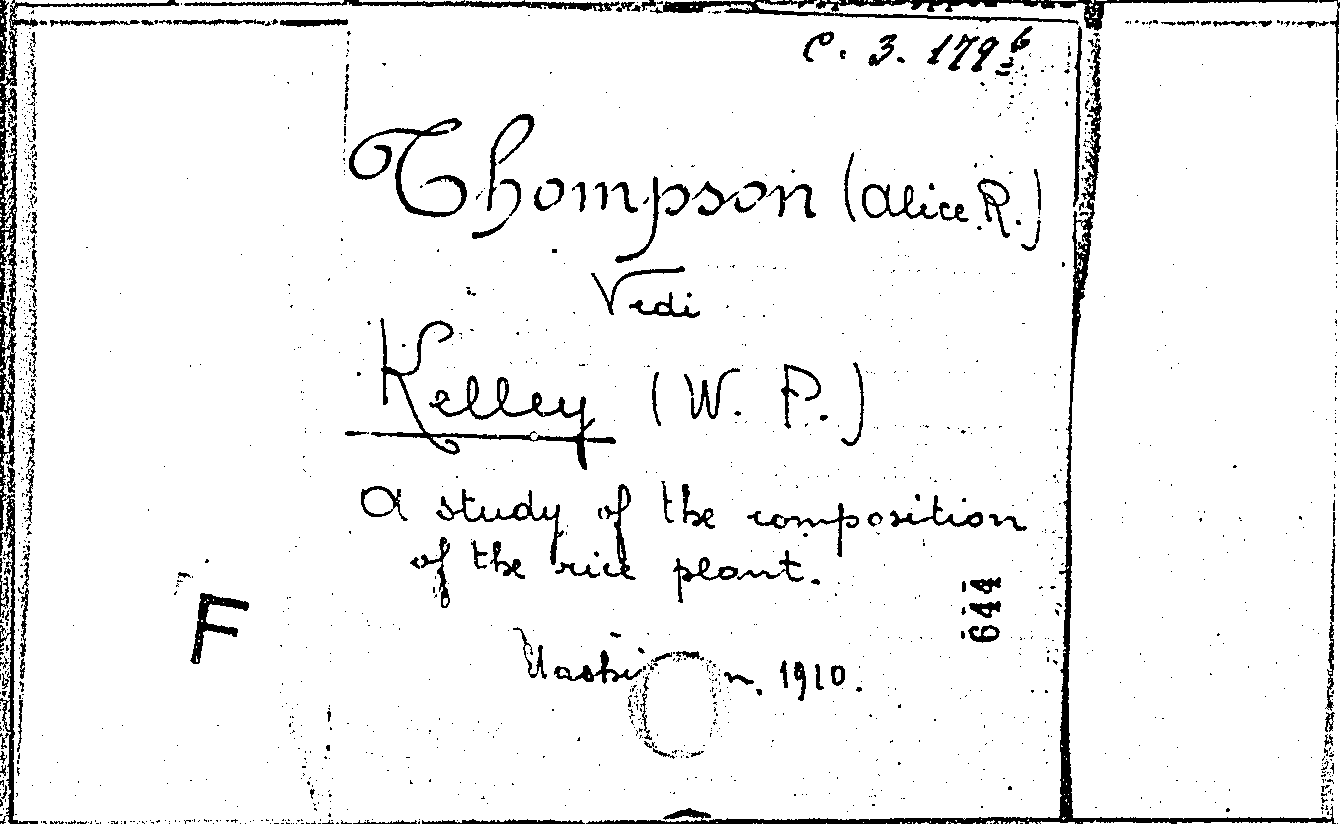 C. 3. 179⁶
Thompson (Alice R.)
Vedi
Kelley (W. P.)
A study of the composition
of the rice plant.
644
F
1910.